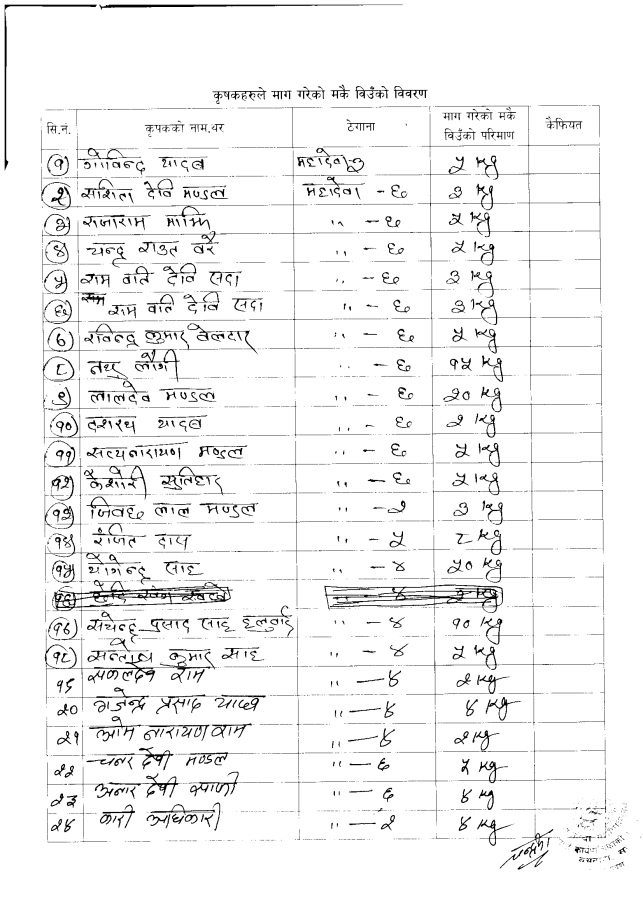 कृषकहरुले माग गरेको मकै विउँको विवरण
सि.नं. कृषकको नाम,थर ठेगाना माग गरेको मकै विउँको परिमाण कैफियत
१ गोविन्द यादव महादेवा ५ kg
२ सशिला देवि मण्डल महादेवा - ६ ३ kg
३ राजाराम माझि ,, - ६ ५ kg
४ चन्द्र राउत वरै ,, - ६ ५ kg
५ राम वति देवि सदा ,, - ६ ३ kg
६ राम वति देवि सदा ,, - ६ ३ kg
७ रविन्द्र कुमार वेलदार ,, - ६ ५ kg
८ नथु लौगी ,, - ६ १५ kg
९ लालदेव मण्डल ,, - ६ २० kg
१० दशरथ यादव ,, - ६ २ kg
११ सत्यनारायण मण्डल ,, - ६ ५ kg
१२ कैशोरी सुतिहार ,, - ६ ५ kg
१३ जिवछ लाल मण्डल ,, - २ ३ kg
१४ रंजित दास ,, - ५ ८ kg
१५ योगेन्द्र साह ,, - ४ ५० kg
१७ सत्येन्द्र प्रसाद साह हलुवाई ,, - ४ १० kg
१८ सन्तोष कुमार साह ,, - ४ ५ kg
१९ सकलदेव राम ,, - ४ २ kg
२० गजेन्द्र प्रसाद यादव ,, - ४ ४ kg
२१ ओम नारायण राम ,, - ४ २ kg
२२ चनर देवी मण्डल ,, - ६ ५ kg
२३ अनार देवी ,, - ६ ४ kg
२४ कारी अधिकारी ,, - २ ४ kg